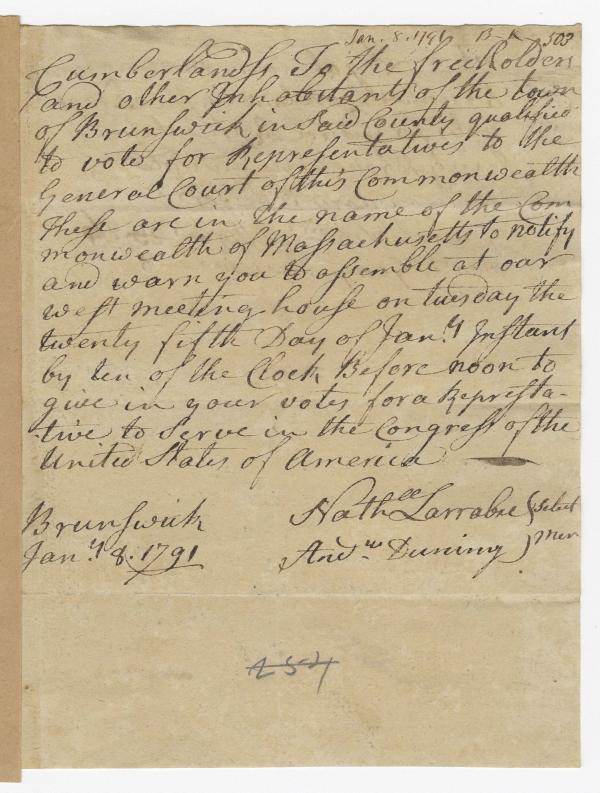 Jan. 8. 1791 503
Cumberland ss To the freeholders
and other Inhabitants of the town
of Brunswick in Said County qualified
to vote for Representatives to the
General Court of this Commonwealth
These are in the name of the Com
monwealth of Massachusetts to notify
and warn you to assemble at our
west meeting house on tuesday the
twenty fifth Day of Jany Instant
by ten of the Clock Before noon to
give in your votes for a Represta-
-tive to Serve in the Congress of the
United States of America
Brunswick Nathll Larrabee } Select
Jany 8. 1791 Andw Duning } Men
254